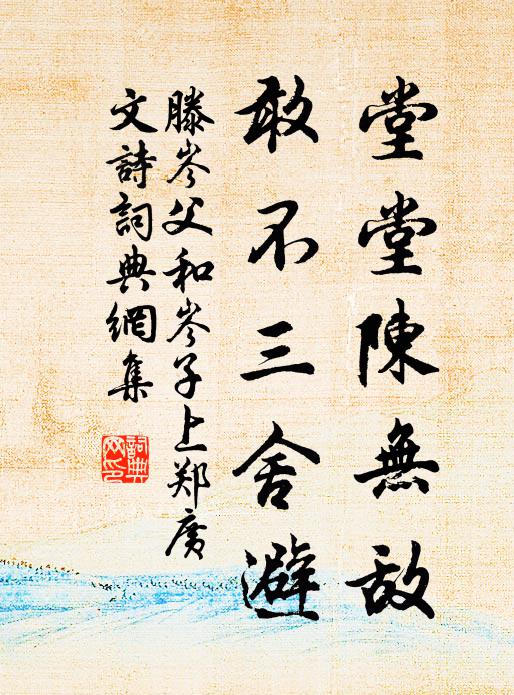 堂堂陳無敵
敢不三舍避
滕岑父和岑子上郑广
文詩詞典網集
詞典
文詩